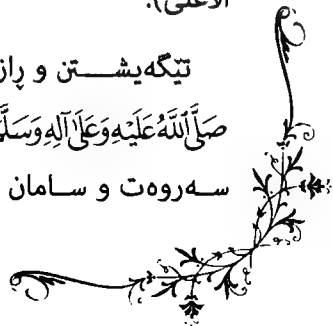 الأعلى).
تێگەیشتن و ڕاز
صَلَّى اللَّهُ عَلَيْهِ وَعَلَى آلِهِ وَسَلَّمَ
سەروەت و سامان